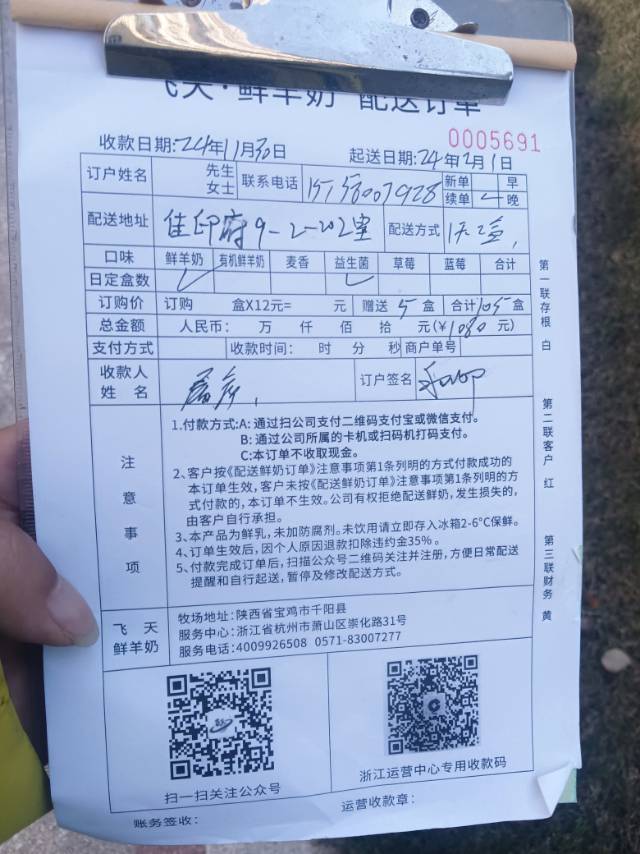 飞天·鲜羊奶 配送订单
0005691
收款日期:24年11月30日 起送日期:24年12月1日
订户姓名 先生 女士 联系电话 新单 早
续单 晚
配送地址 佳印府9-2-202室 配送方式 1天1盒
口味 鲜羊奶 有机鲜羊奶 麦香 益生菌 草莓 蓝莓 合计
日定盒数 ✓ ✓
订购价 订购 盒X12元= 元 赠送 5 盒 合计105盒
总金额 人民币: 万 仟 佰 拾 元(￥1080元)
支付方式 收款时间: 时 分 秒 商户单号
收款人姓名 订户签名
注意事项
1.付款方式:A:通过扫公司支付二维码支付宝或微信支付。
B:通过公司所属的卡机或扫码机打码支付。
C:本订单不收取现金。
2、客户按《配送鲜奶订单》注意事项第1条列明的方式付款成功的
本订单生效，客户未按《配送鲜奶订单》注意事项第1条列明的方
式付款的，本订单不生效。公司有权拒绝配送鲜奶，发生损失的，
由客户自行承担。
3、本产品为鲜乳，未加防腐剂。未饮用请立即存入冰箱2-6°C保鲜。
4、订单生效后，因个人原因退款扣除违约金35%。
5、付款完成订单后，扫描公众号二维码关注并注册，方便日常配送
提醒和自行起送，暂停及修改配送方式。
飞天鲜羊奶
牧场地址:陕西省宝鸡市千阳县
服务中心:浙江省杭州市萧山区崇化路31号
服务电话:4009926508 0571-83007277
扫一扫关注公众号
浙江运营中心专用收款码
账务签收: 运营收款章:
第一联存根 白
第二联客户 红
第三联财务 黄